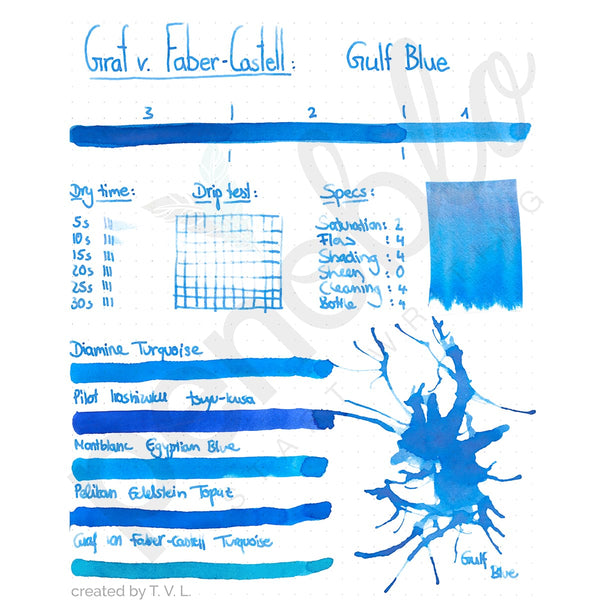 Graf v. Faber-Castell: Gulf Blue
3 2 1
Dry time: Drip test: Specs:
5s
10s
15s
20s
25s
30s
Saturation: 2
Flow : 4
Shading : 4
Sheen : 0
Cleaning : 4
Bottle : 4
Diamine Turquoise
Pilot Iroshizuku tsuyu-kusa
Montblanc Egyptian Blue
Pelikan Edelstein Topaz
Graf von Faber-Castell Turquoise
Gulf
Blue
created by T. V. L.